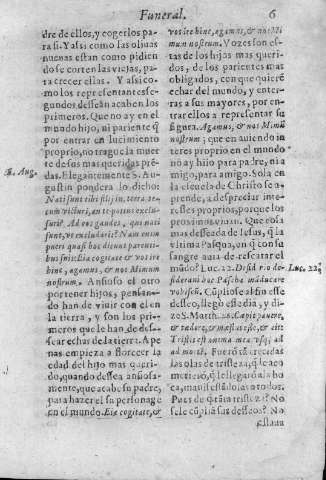 Funeral. 6
dre de ellos, y cogerlos pa-
ra si. Y assi como las oliuas
nueuas estan como pidien
do se corten las viejas, pa-
ra crecer ellas. Y assi co-
mo los representantes se-
gundos dessean acaben los
primeros. Que no ay en el
mundo hijo, ni pariente q̃
por entrar en lucimiento
proprio, no trague la muer
te de sus mas queridas prẽ-
das. Elegantemente S. Au-
S. Aug.
gustin pondera lo dicho:
Nati sunt tibi filij in terra, te-
cum victuri, an te potius exclu-
suri? Ad eos gaudes, qui nati
sunt, vt excludaris? Nam enim
pueri quasi hoc dicunt parenti-
bus suis: Eia cogitate & vos ire
hinc, agamus, & nos Mimum
nostrum. Ansioso el otro
por tener hijos, pensan-
do han de viuir con el en
la tierra, y son los pri-
meros que le han de des-
sear echar de la tierra. Ape
nas empieza a florecer la
edad del hijo mas queri-
do, quando dessea ansiosa-
mente, que acabe su padre,
para hazer el su personage
en el mundo. Eia cogitate, &
vos ire hinc, agamus, & nos Mi
mum nostrum. Vozes son es-
tas de los hijos mas queri-
dos, y de los parientes mas
obligados, con que quierẽ
echar del mundo, y enter-
rar a sus mayores, por en-
trar ellos a representar su
figura. Agamus, & nos Mimũ
nostrum; que en auiendo in
teres proprio en el mundo
no ay hijo para padre, ni a
migo, para amigo. Sola en
la escuela de Christo se a-
prende, a despreciar inte-
resses proprios, porque los
proximos viuan. Que cosa
mas desseada de Iesus, q̃ la
vltima Pasqua, en q̃ con su
sangre auia de rescatar el
mundo? Luc. 22. Desiderio de-
Luc. 22.
sideraui hoc Pascha māducare
vobiscum. Cũpliose al fin esse
desseo, llegò este dia, y di-
ze S. Matth. 26. Cœpit pauere,
& tædere, & mœstus esse, & ait
Tristis est anima mea vsq; ad
ad mortē. Fuerõ tã crecidas
las olas de tristeza, q̃ le aco
metierõ, q̃ le llegarõ a la bo
ca, manifestãdolas a todos.
Pues de q̃ tãta tristeza? No
se le cũplia sus desseos? No